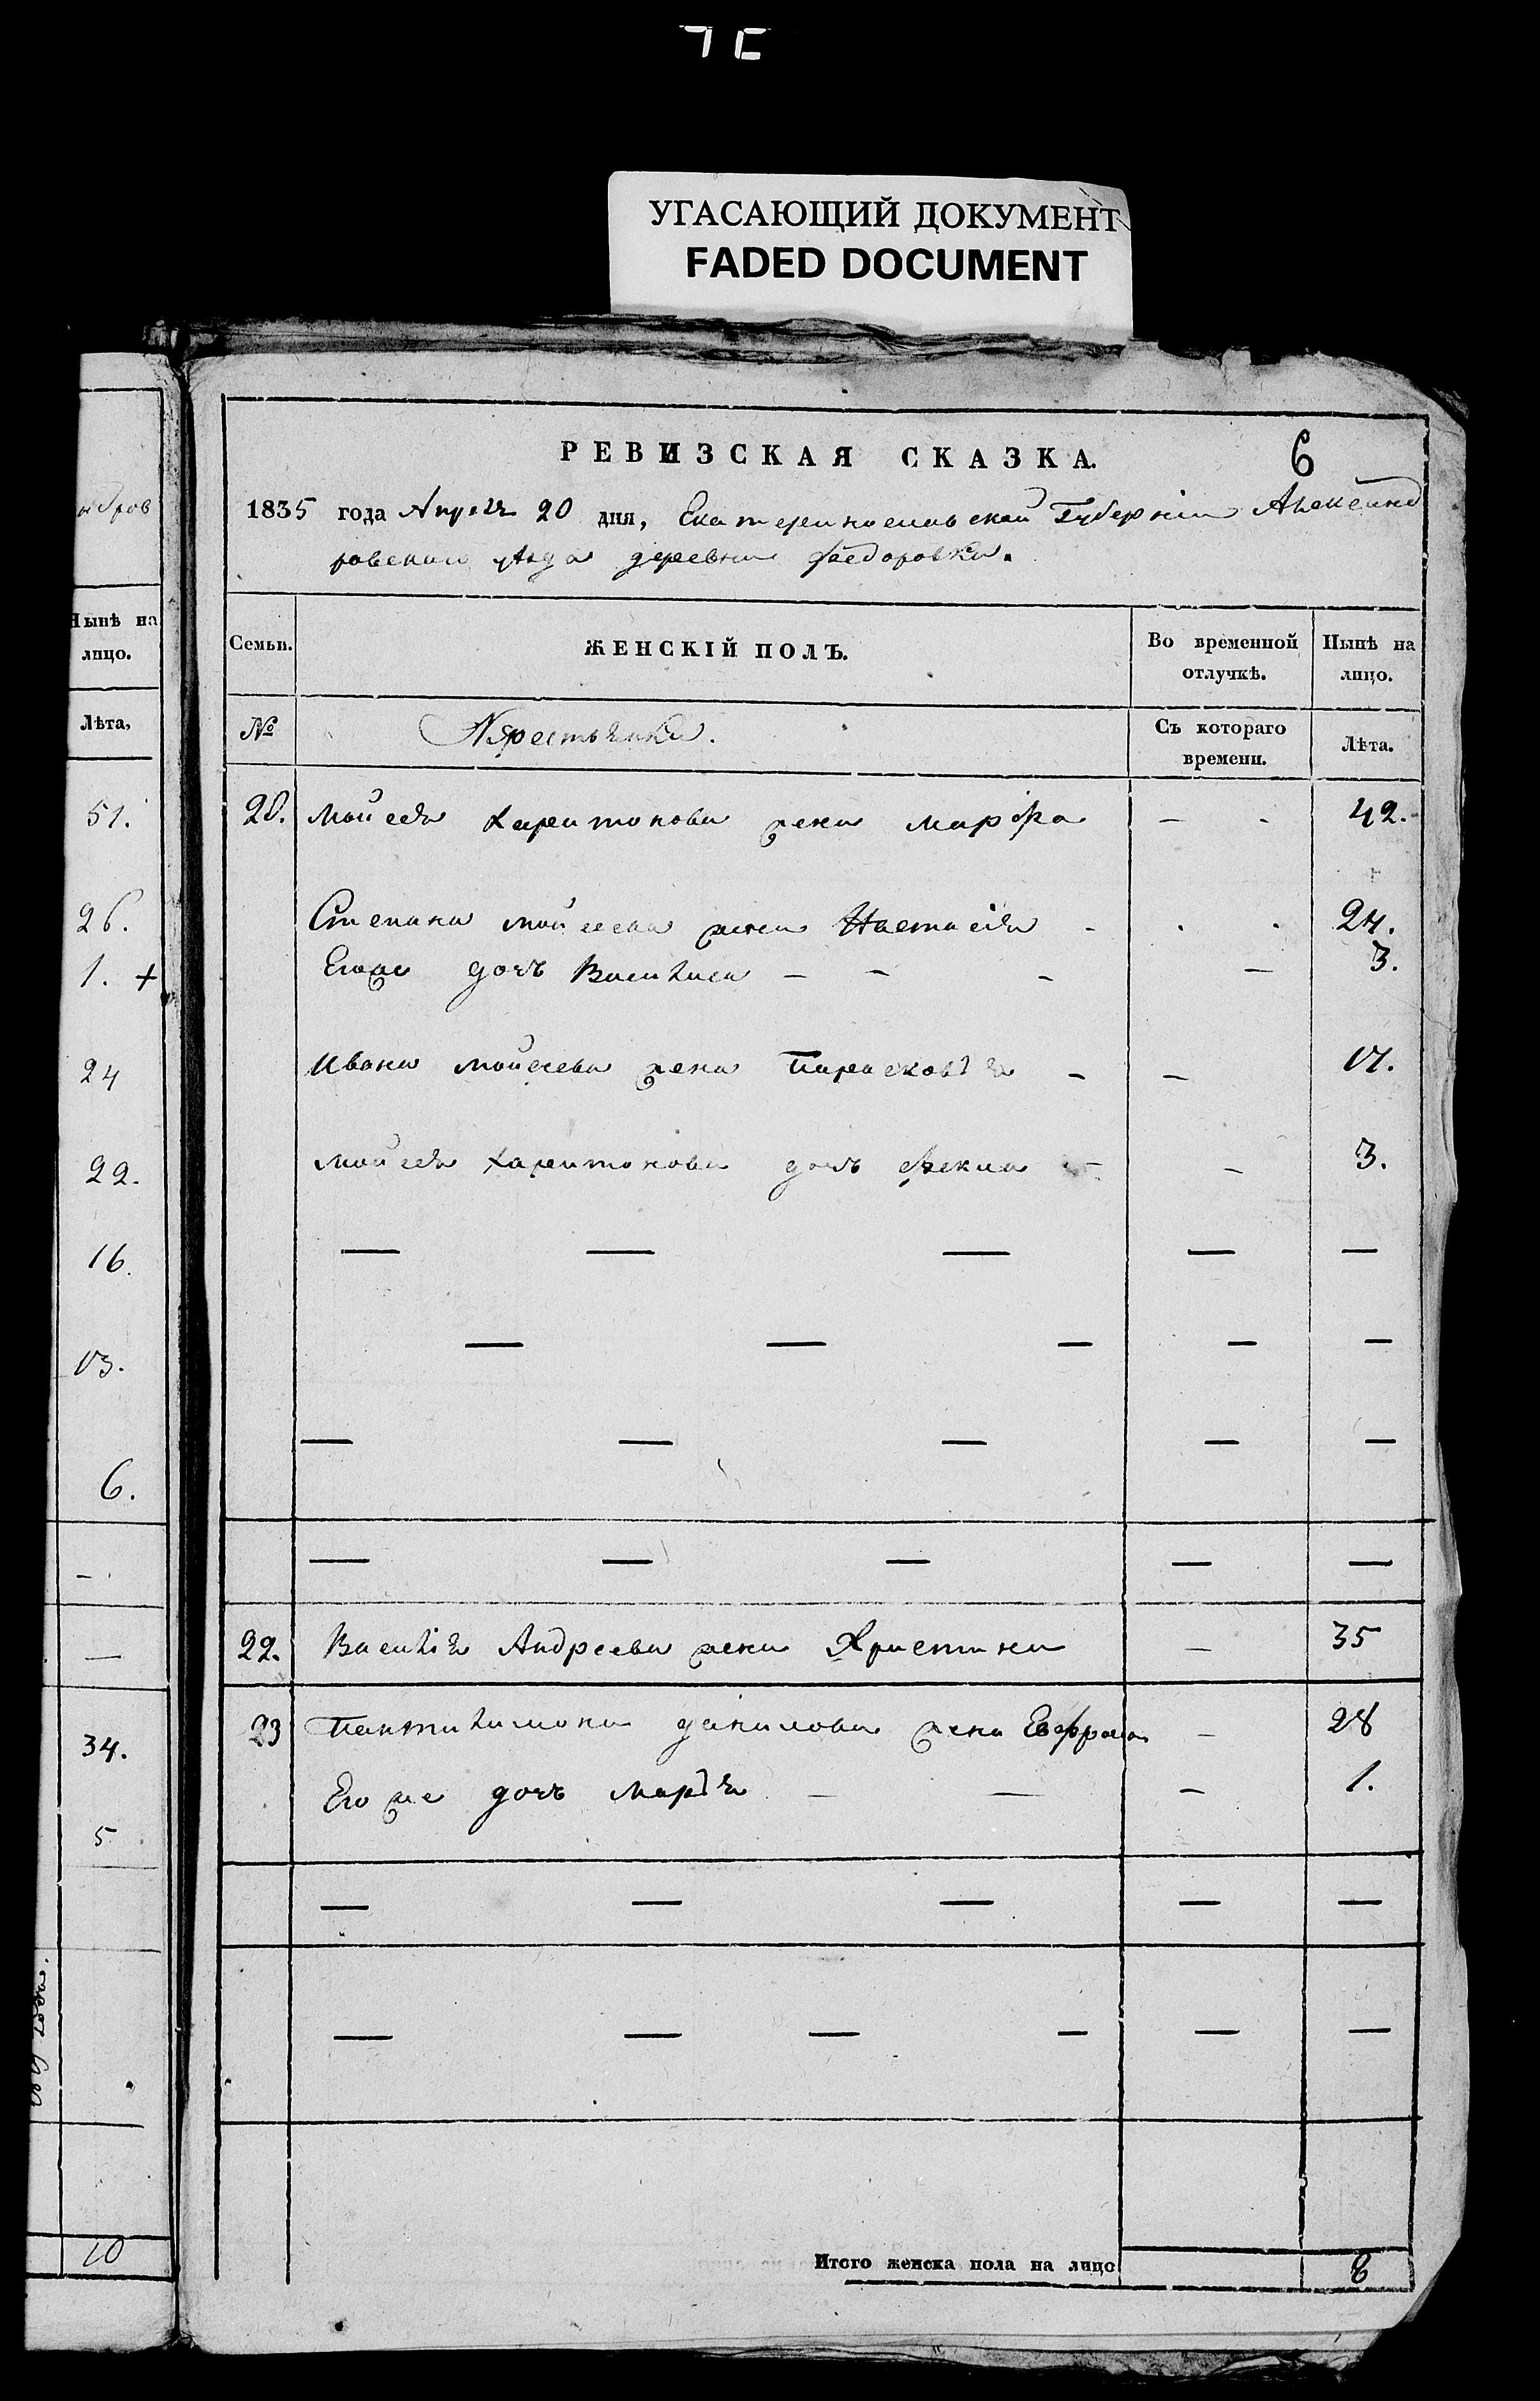 УГАСАЮЩИЙ ДОКУМЕНТ
FADED DOCUMENT
ндров
Нынѣ на
лицо.
Лѣта,
51.
26.
1. +
24
22.
16.
13.
6.
-
—
34.
5
10
РЕВИЗСКАЯ СКАЗКА. 6
1835 года Апреля 20 дня, Екатеринославской Губерніи Александ
ровскаго уѣзда деревни Федоровки.
Семьи. ЖЕНСКІЙ ПОЛЪ. Во временной отлучкѣ. Нынѣ на лицо.
№ Крестьянки. Съ котораго времени. Лѣта.
20. Мойсея Харитонова жена Марфа — - 42.
Степана Мойсеева жена Настасія - - - 24.
Егоже дочь Василиса — — - — 3.
Ивана Мойсеева жена Парасковія - — 17.
Мойсея Харитонова дочь Фекла - — 3.
— — — — —
— — — — —
— — — — —
— — — — —
22. Василія Андреева жена Христина — 35
23 Пантилимона Данилова жена Евфр
 — 28
Егоже дочь Марія — — — 1.
— — — — —
— — — — — —
Итого женска пола на лицо 8